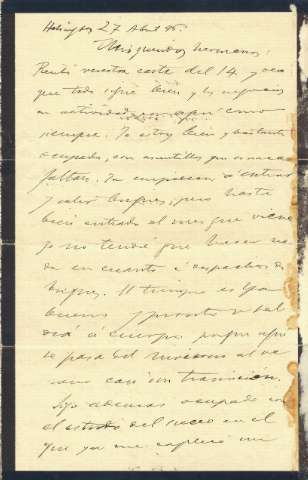 Helsingfors 27 Abril 95.
Mis queridos hermanos:
Recibí vuestra carta del 14. y veo
que todo sigue bien y los negocios
en actividad, por aquí como
siempre. Yo estoy bien y bastante
ocupado, con asuntillos que nunca
faltan. Ya empiezan á entrar
y salir buques, pero hasta
bien entrado el mes que viene
yo no tendré que hacer na-
da en cuanto á despachos de
buques. El tiempo es
bueno y pronto se sal
drá á cuerpo, porque aquí
se pasa del invierno al ve-
rano casi sin transición.
Sigo además ocupado con
el estudio del sueco en el
que ya me explico un